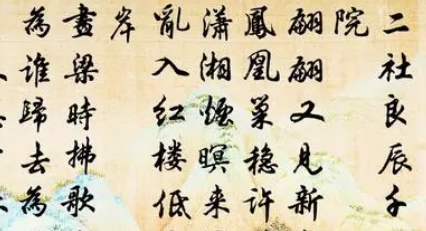 二社良辰千
院
翩翩又見新
鳳凰巢穩許
瀟湘煙暝來
亂入紅樓低
岸
畫梁時拂歌
為誰歸去為